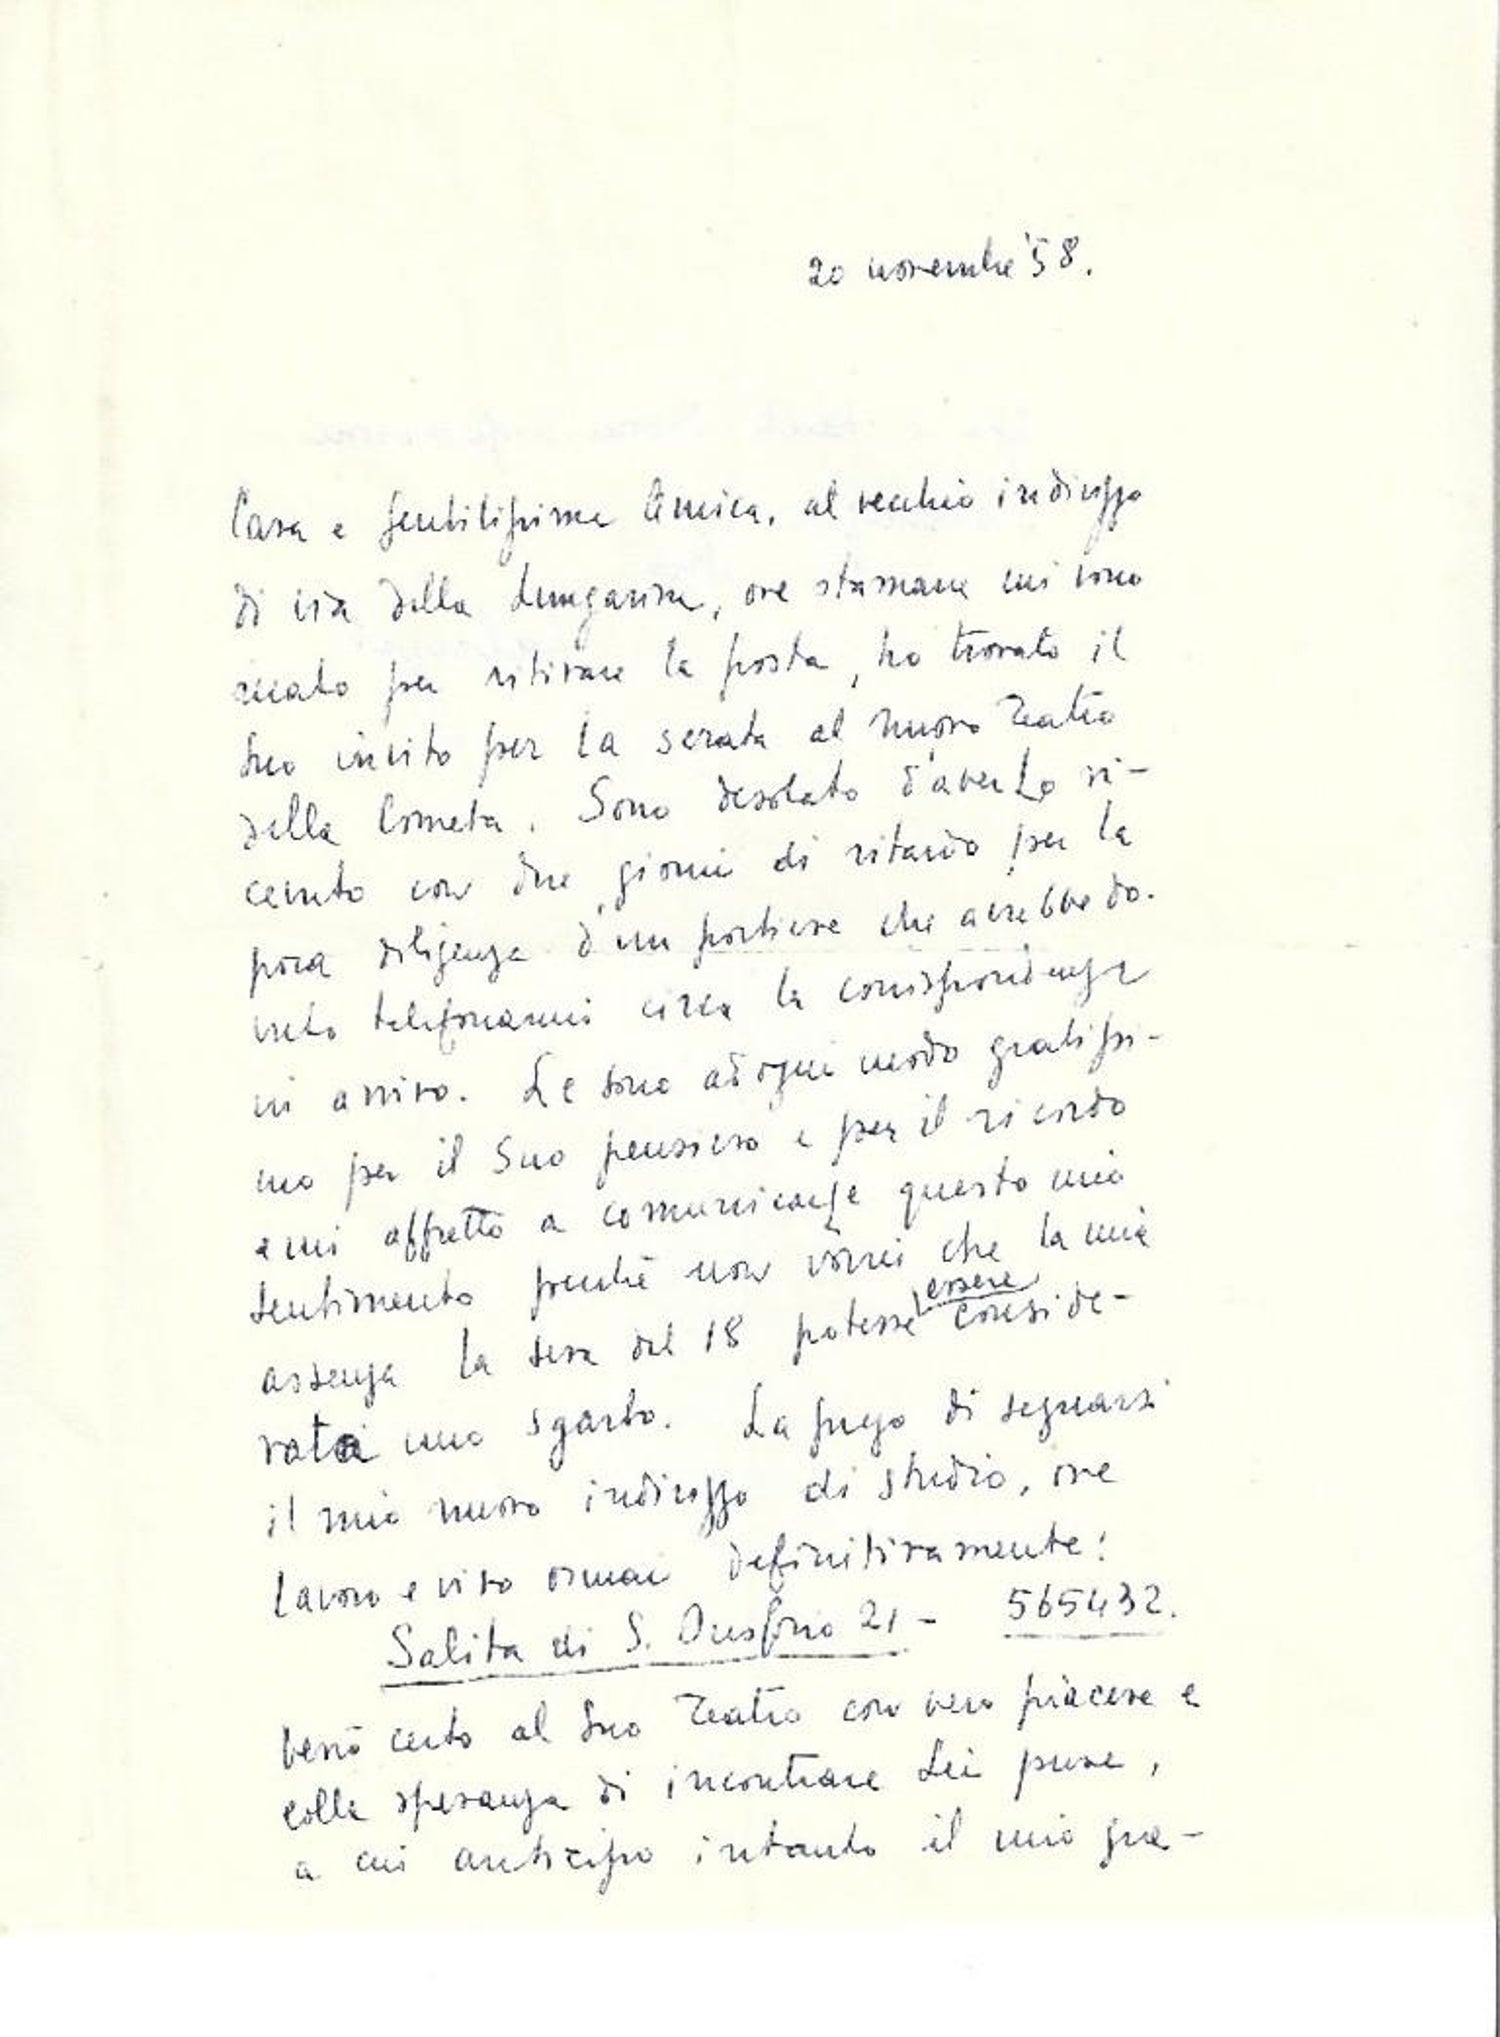 20 novembre '58.
Cara e gentilissima Amica, al vecchio indirizzo
di via della Lungarina, ove stamane mi sono
recato per ritirare la posta, ho trovato il
Suo invito per la serata al nuovo Teatro
della Cometa. Sono desolato d'averLo ri-
cevuto con due giorni di ritardo per la
poca diligenza d'un portiere che avrebbe do-
vuto telefonarmi circa la corrispondenza
in arrivo. Le sono ad ogni modo gratissi-
mo per il Suo pensiero e per il ricordo
e mi affretto a comunicarLe questo mio
sentimento perché non vorrei che la mia
assenza la sera del 18 potesse essere conside-
rata uno sgarbo. La prego di segnarsi
il mio nuovo indirizzo di studio, ove
lavoro e vivo ormai definitivamente:
Salita di S. Onofrio 21 - 565432.
Verrò certo al Suo Teatro con vero piacere e
colla speranza di incontrare Lei pure,
a cui anticipo intanto il mio gra-